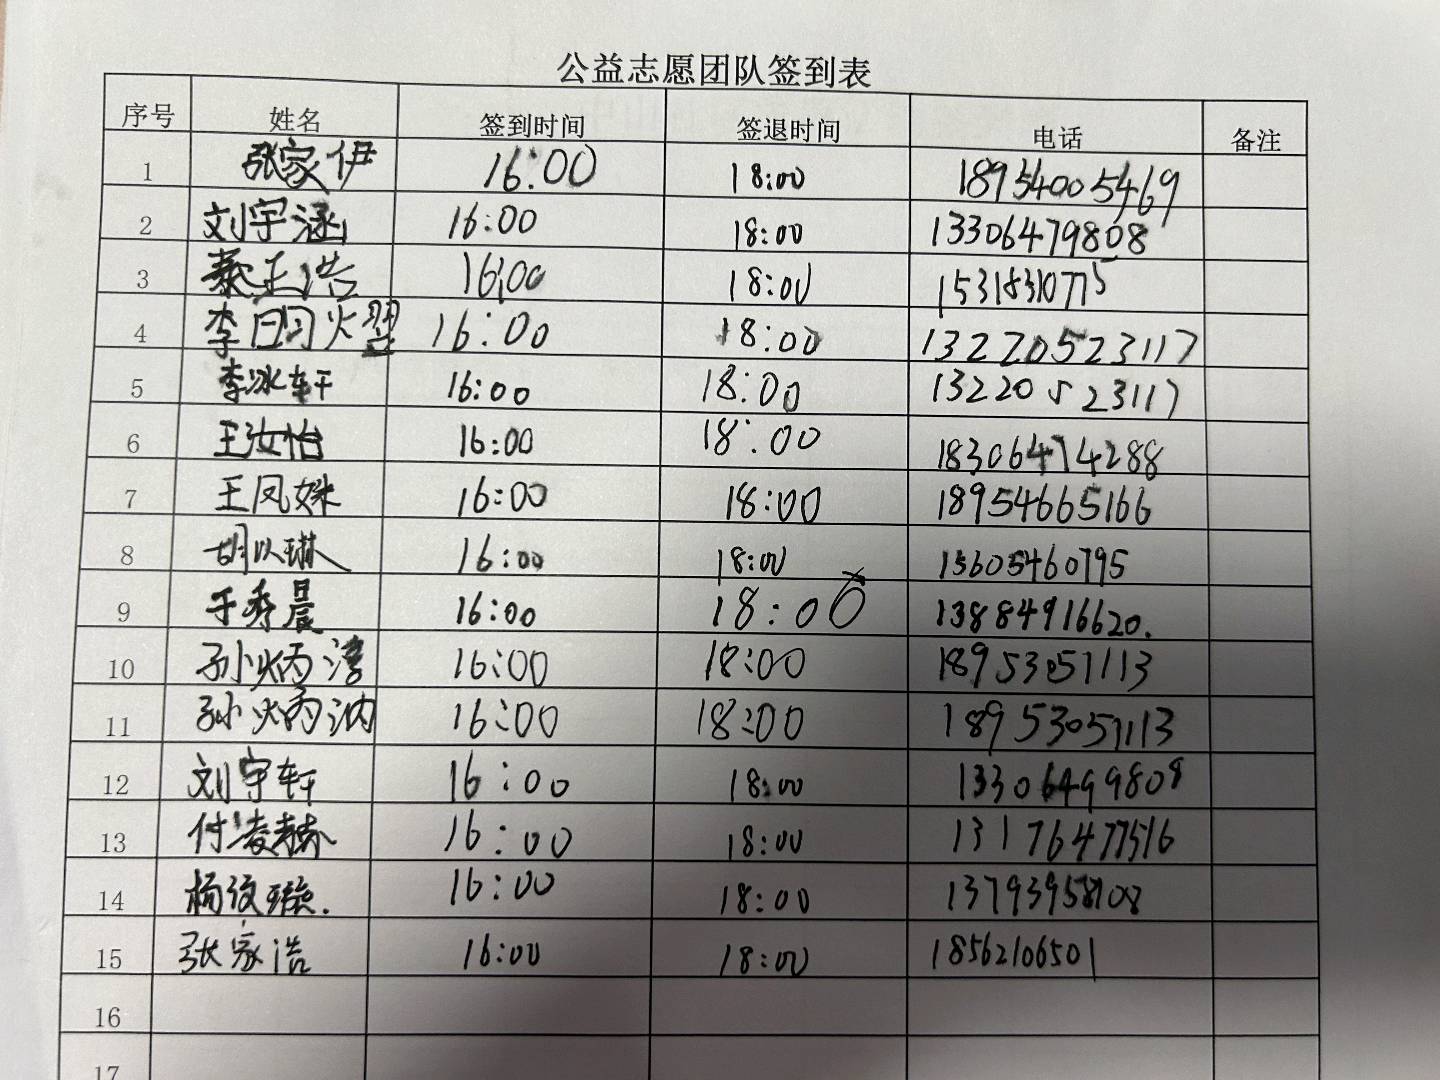 公益志愿团队签到表
序号 姓名 签到时间 签退时间 电话 备注
1 张家伊 16:00 18:00 18954005469
2 刘宇涵 16:00 18:00 13306479808
3 蔡正浩 16:00 18:00 15318310775
4 李明翌 16:00 18:00 13220523117
5 李冰轩 16:00 18:00 13220523117
6 王汝怡 16:00 18:00 18306474288
7 王凤姝 16:00 18:00 18954665166
8 胡以琳 16:00 18:00 15605460795
9 于秀晨 16:00 18:00 13884916620.
10 孙炳淳 16:00 18:00 18953051113
11 孙炳汭 16:00 18:00 18953051113
12 刘宇轩 16:00 18:00 13306499808
13 付凌赫 16:00 18:00 13176477516
14 杨俊璇. 16:00 18:00 13793958108
15 张家浩 16:00 18:00 18562106501
16
17